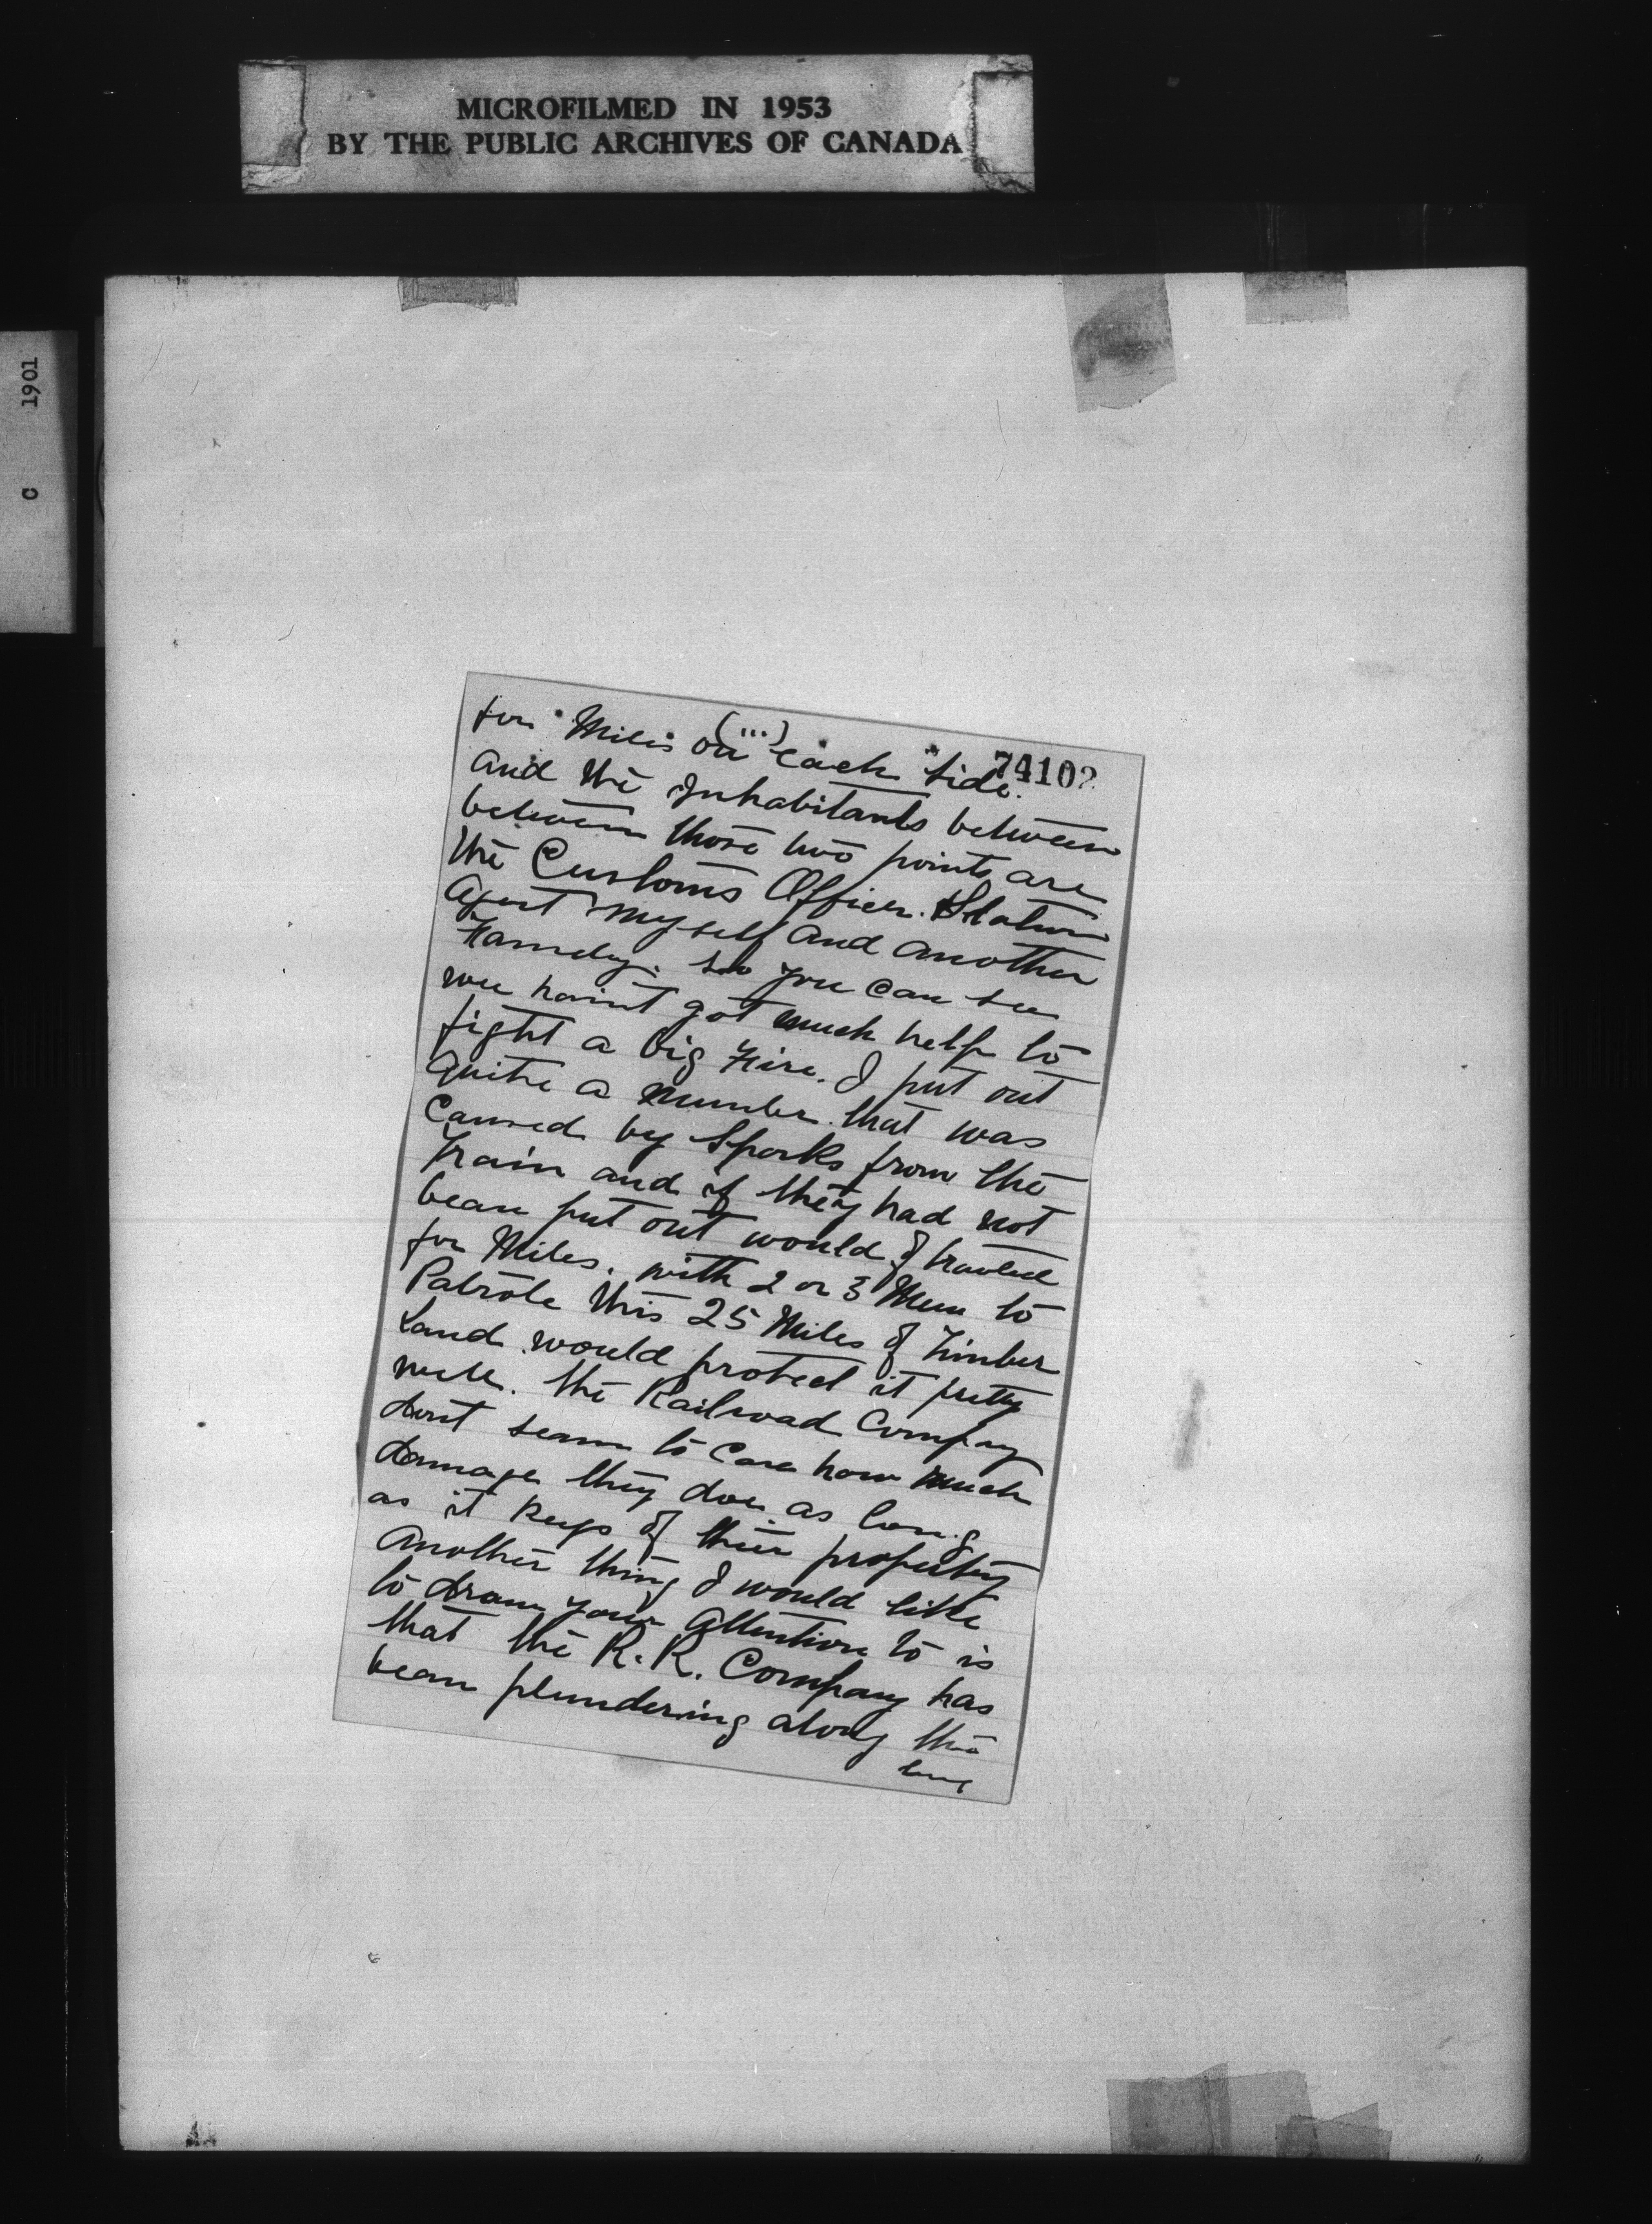 MICROFILMED IN 1953
BY THE PUBLIC ARCHIVES OF CANADA
C 1901
(...)
74102
for Miles on each side.
and the Inhabitants between
between those two points are
the Customs Officer. Station
Agent myself and another
Family. so you can see
wee haint got much help to
fight a big Fire. I put out
quite a number that was
Caused by Sparks from the
train and if they had not
bean put out would of traveled
for Miles. with 2 or 3 Men to
Patrole this 25 Miles of Timber
Land would protect it pretty
well. the Railroad Company
dont seam to Care how much
damage they doe. as long
as it keeps of their property
Another thing I would like
to draw your attention to is
that the R. R. Company has
bean plundering along the
line